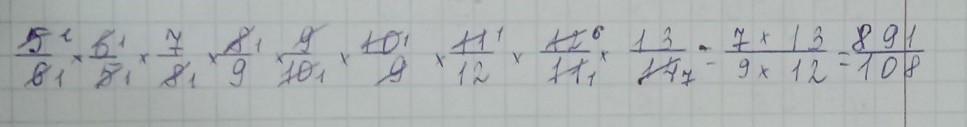 5¹/6₁ × 6¹/5₁ × 7/8₁ × 8₁/9 × 9/10₁ × 10¹/9 × 11¹/12 × 12⁶/11₁ × 13/14₇ = 7 × 13/9 × 12 = 891/108